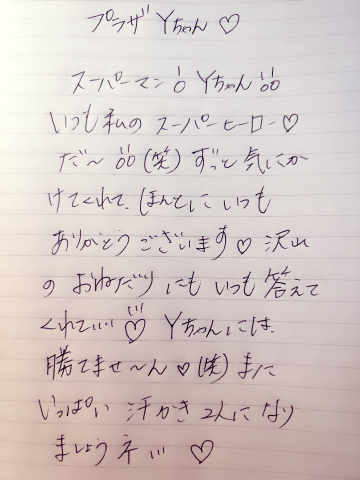 プラザ Yちゃん♡
スーパーマン!! Yちゃん!!!
いつも私の スーパーヒーロー♡
だ〜!!! (笑) ずっと気にか
けてくれて、ほんとにいつも
ありがとうございます♡ 沢山
の おねだり にも いつも 答えて
くれて、、、、♡ Yちゃんには、
勝てませ〜ん♡(笑) また
いっぱい 汗かき 2人に なり
ましょうネ、、、 ♡